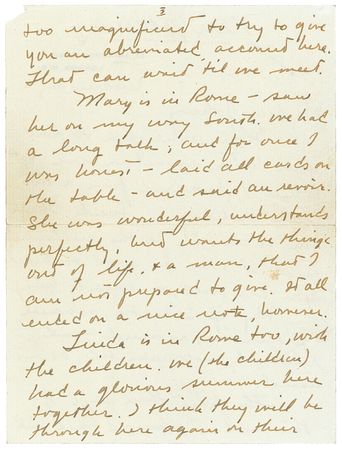 3
too magnificent to try to give
you an abreviated account here.
That can wait 'til we meet.
Mary is in Rome – saw
her on my way South. We had
a long talk, and for once I
was honest – laid all cards on
the table – and said au revoir.
She was wonderful, understands
perfectly, but wants the things
out of life, & a man, that I
am not prepared to give. It all
ended on a nice note, however.
Linda is in Rome too, with
the children. We (the children)
had a glorious summer here
together. I think they will be
through here again on their